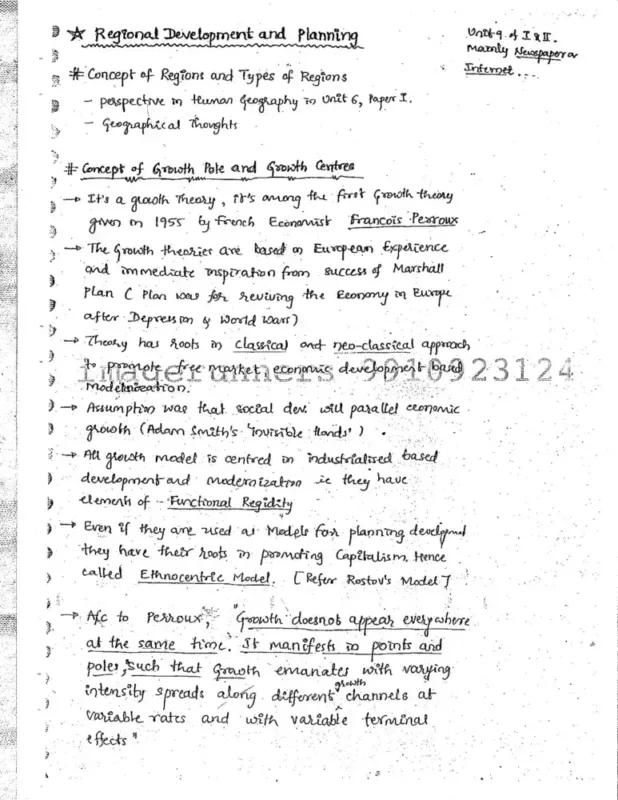 ☆ Regional Development and Planning
Unit-9 of I & II.
Mainly Newspaper or
Internet...
# Concept of Regions and Types of Regions
- perspective in Human Geography in Unit 6, Paper I.
- Geographical Thoughts
# Concept of Growth Pole and Growth Centres
→ It's a growth Theory, it's among the first Growth theory
given in 1955 by French Economist Francois Perroux
→ The Growth theories are based on European Experience
and immediate inspiration from success of Marshall
Plan ( Plan was for reviving the Economy in Europe
after Depression & World Wars)
→ Theory has roots in classical and neo-classical approach
to promote free market, economic development based
Modernization.
imagerunners 9810923124
→ Assumption was that social dev. will parallel economic
growth (Adam Smith's 'Invisible Hands').
→ All growth model is centred on industrialised based
development and modernization ie they have
elements of - Functional Regidity
→ Even if they are used as Models for planning development
they have their roots in promoting Capitalism. Hence
called Ethnocentric Model. [Refer Rostov's Model]
→ A/c to Perroux, "Growth doesnot appear everywhere
at the same time. It manifests in points and
poles, such that Growth emanates with varying
intensity spreads along different growth channels at
variable rates and with variable terminal
effects"